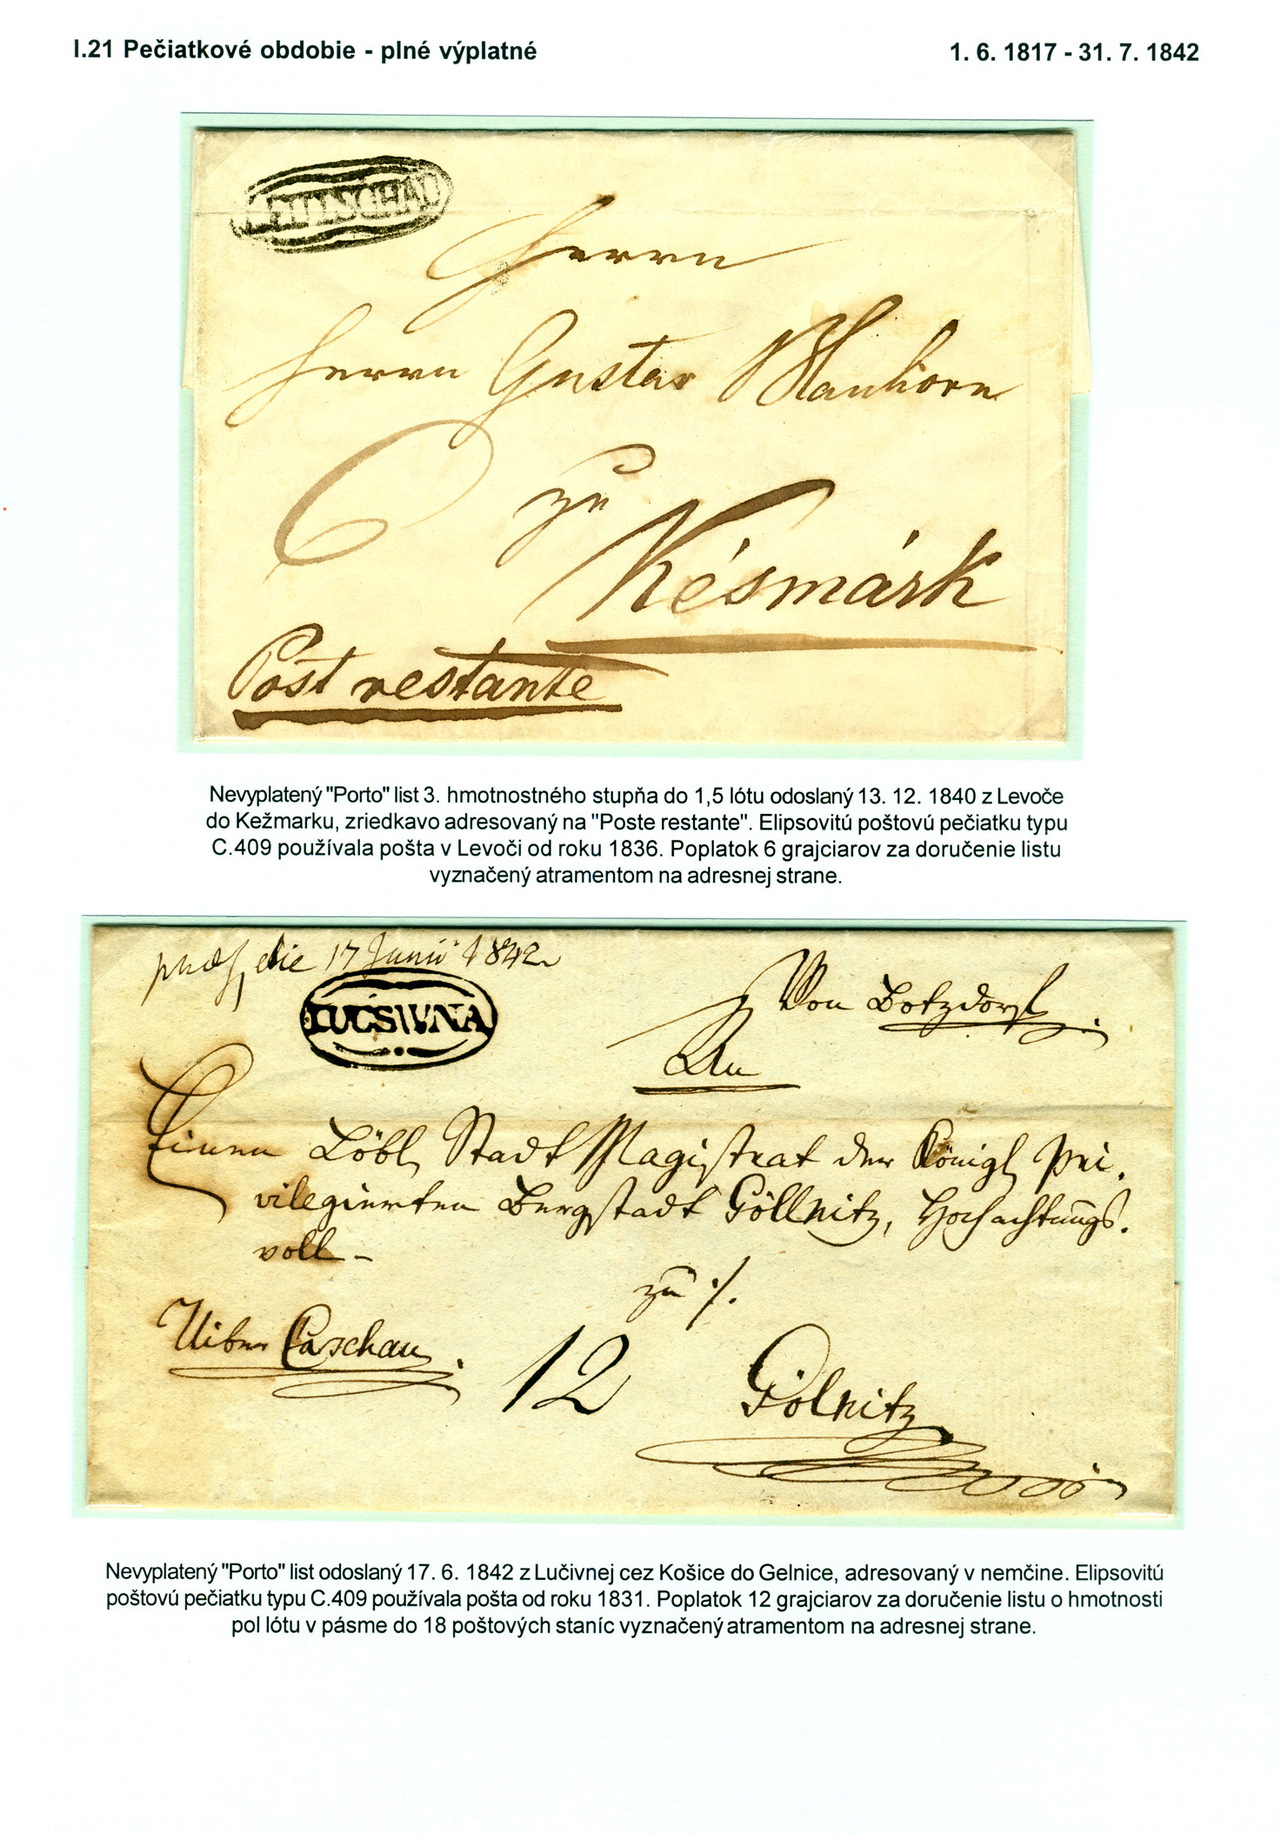 I.21 Pečiatkové obdobie - plné výplatné
1. 6. 1817 - 31. 7. 1842
LEUTSCHAU
Herrn
Herrn Gustav
6 zu
Késmárk
Post restante
Nevyplatený "Porto" list 3. hmotnostného stupňa do 1,5 lótu odoslaný 13. 12. 1840 z Levoče
do Kežmarku, zriedkavo adresovaný na "Poste restante". Elipsovitú poštovú pečiatku typu
C.409 používala pošta v Levoči od roku 1836. Poplatok 6 grajciarov za doručenie listu
vyznačený atramentom na adresnej strane.
die 17 Junii 1842
LUCSIVNA
Von Botzdorf
An
Einen Löbl Stadt Magistrat der Königl Pri.
vilegierten Bergstadt Göllnitz, Hochachtungs.
voll -
zu ./.
Uiber Caschau
12
Gölnitz
Nevyplatený "Porto" list odoslaný 17. 6. 1842 z Lučivnej cez Košice do Gelnice, adresovaný v nemčine. Elipsovitú
poštovú pečiatku typu C.409 používala pošta od roku 1831. Poplatok 12 grajciarov za doručenie listu o hmotnosti
pol lótu v pásme do 18 poštových staníc vyznačený atramentom na adresnej strane.